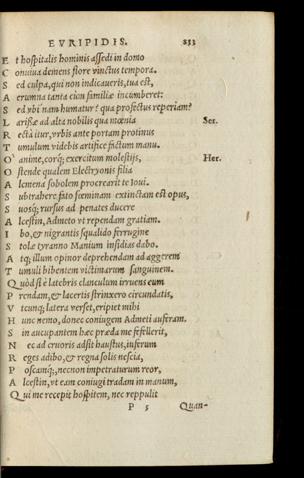 EVRIPIDIS. 233
E t hospitalis hominis assedi in domo
C onuiua demens flore vinctus tempora.
S ed culpa, qui non indicaueris, tua est,
A erumna tanta cùm familiæ incumberet:
S ed vbi nam humatur? qua profectus reperiam?
L arissæ ad alta nobilis qua mœnia Ser.
R ectà itur, vrbis ante portam protinus
T umulum videbis artifice factum manu.
O' anime, corq́; exercitum molestijs, Her.
O stende qualem Electryonis filia
A lcmena sobolem procrearit te Ioui.
S ubtrahere fato fœminam extinctam est opus,
S uosq́; rursus ad penates ducere
A lcestin, Admeto vt rependam gratiam.
I bo, & nigrantis squalido ferrugine
S tola tyranno Manium insidias dabo.
A tq́; illum opinor deprehendam ad aggerem
T umuli bibentem victimarum sanguinem.
Quòd si è latebris clanculum irruens eum
P rendam, & lacertis strinxero circundatis,
V tcunq́; latera verset, eripiet mihi
H unc nemo, donec coniugem Admeti auferam.
S in aucupantem hæc præda me fefellerit,
N ec ad cruoris adsit haustus, inferum
R eges adibo, & regna solis nescia,
P oscamq́;, nec non impetraturum reor,
A lcestin, vt eam coniugi tradam in manum,
Qui me recepit hospitem, nec reppulit
P 5 Quan-